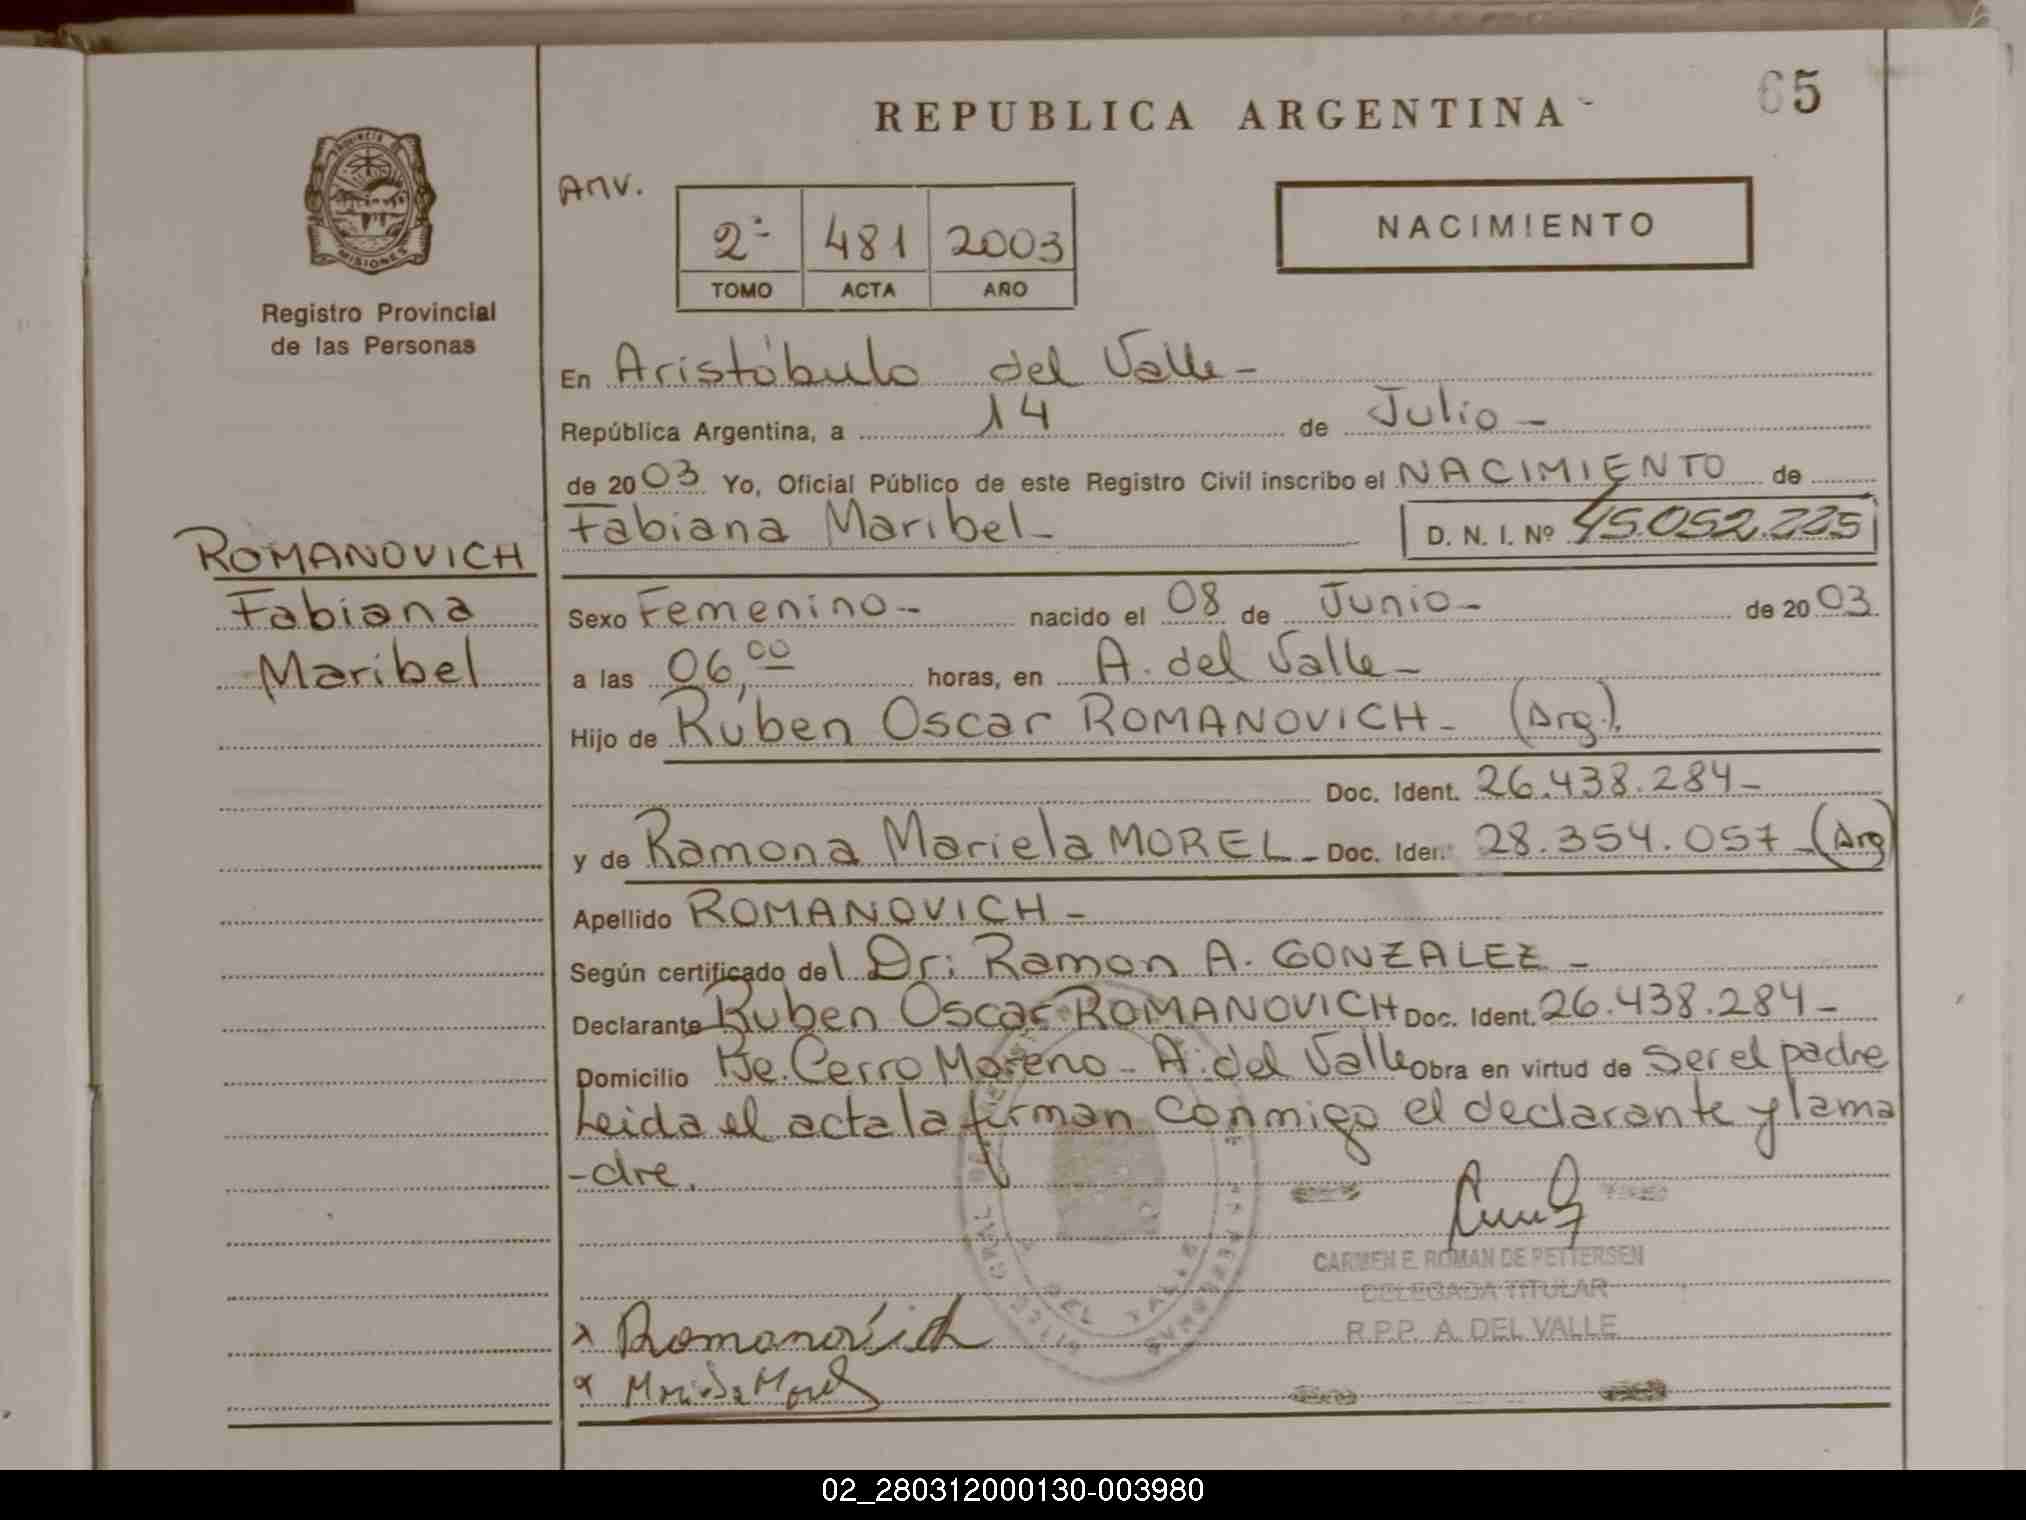 REPUBLICA ARGENTINA
65
PROVINCIA DE MISIONES
Registro Provincial
de las Personas
Anv.
2ª 481 2003
TOMO ACTA AÑO
NACIMIENTO
En Aristóbulo del Valle-
República Argentina, a 14 de Julio-
de 2003 Yo, Oficial Público de este Registro Civil inscribo el NACIMIENTO de
Fabiana Maribel- D. N. I. Nº 45.052.225
ROMANOVICH
Fabiana
Maribel
Sexo Femenino- nacido el 08 de Junio- de 2003
a las 06,00 horas, en A. del Valle-
Hijo de Rúben Oscar ROMANOVICH- (Arg.).
Doc. Ident. 26.438.284-
y de Ramona Mariela MOREL- Doc. Iden. 28.354.057-(Arg)
Apellido ROMANOVICH-
Según certificado del Dr: Ramon A. GONZALEZ-
Declarante Ruben Oscar ROMANOVICH Doc. Ident. 26.438.284-
Domicilio Cerro Moreno- A. del Valle Obra en virtud de ser el padre
Leida el acta la firman conmigo el declarante y la ma
-dre.
CARMEN E. ROMAN DE PETTERSEN
DELEGADA TITULAR
R.P.P. A. DEL VALLE
x Romanovich
x Mariela Morel
02_280312000130-003980